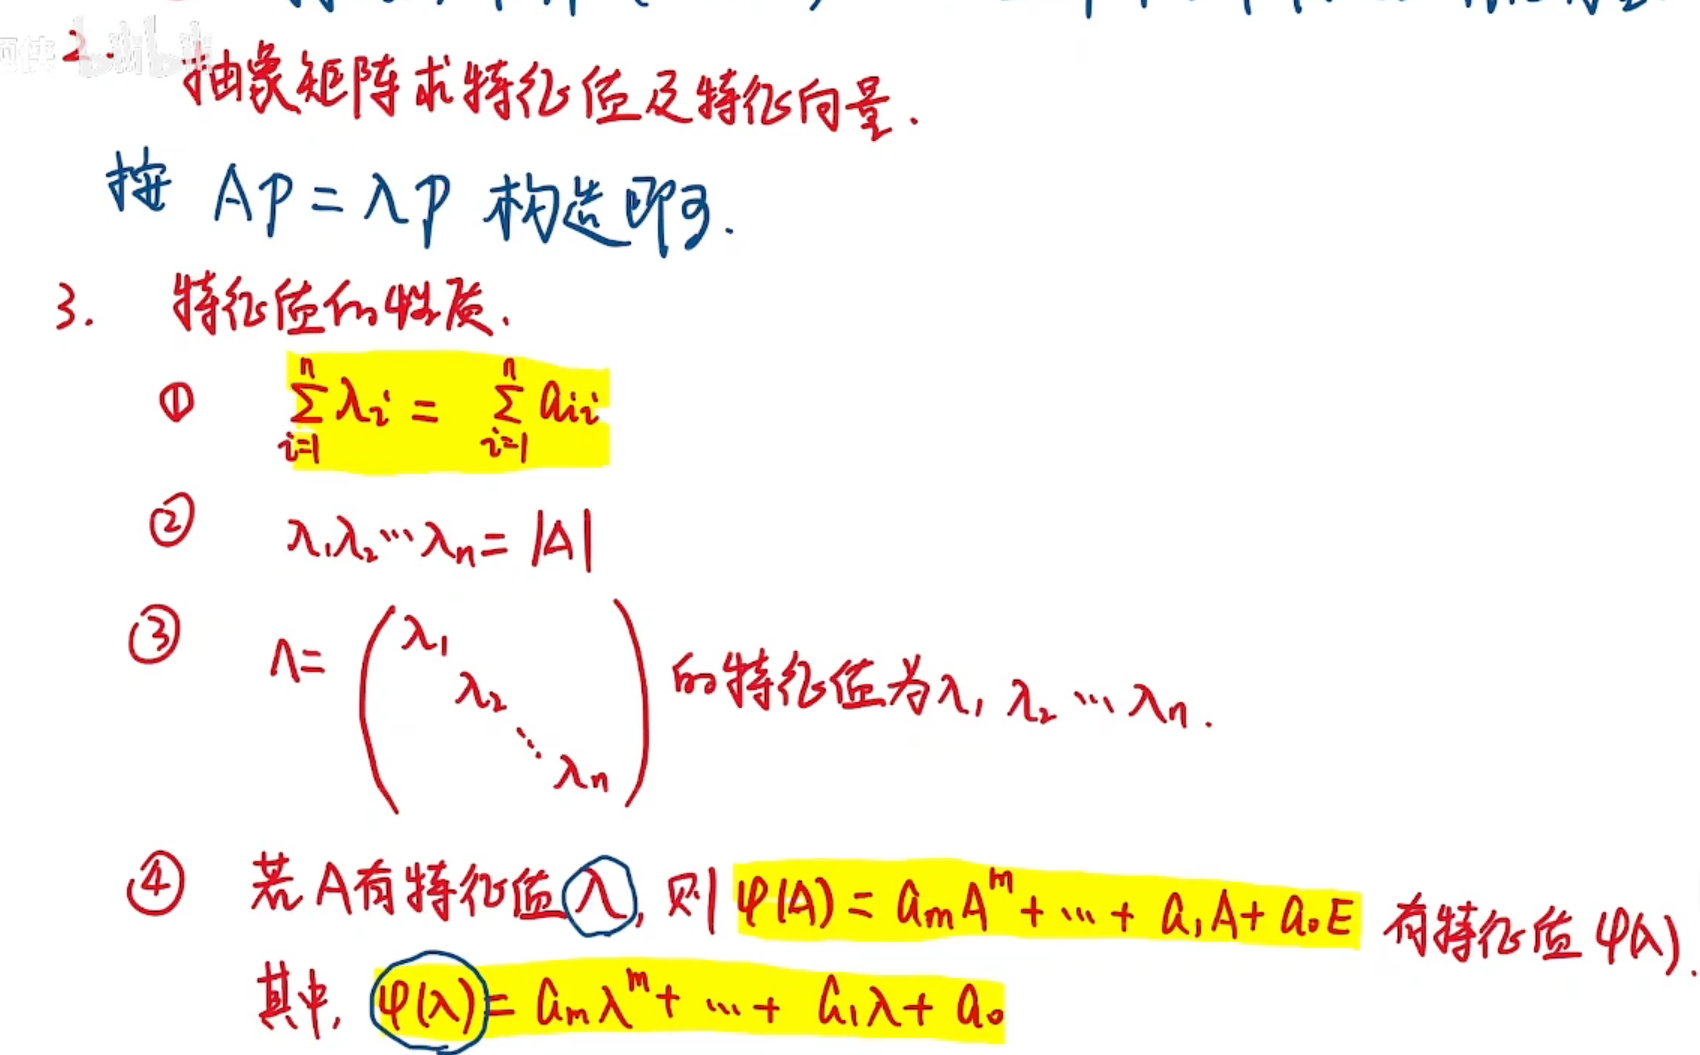 2.
抽象矩阵求特征值及特征向量.
按 Ap = λp 构造即可.
3. 特征值的性质.
① \sum_{i=1}^{n} λ_i = \sum_{i=1}^{n} a_{ii}
② λ_1λ_2⋯λ_n = |A|
③ Λ = \begin{pmatrix} λ_1 & & & \\ & λ_2 & & \\ & & ⋱ & \\ & & & λ_n \end{pmatrix} 的特征值为λ_1 λ_2 ⋯ λ_n.
④ 若A有特征值λ, 则 φ(A) = a_m A^m + ⋯ + a_1 A + a_0 E 有特征值 φ(λ).
其中, φ(λ) = a_m λ^m + ⋯ + a_1 λ + a_0